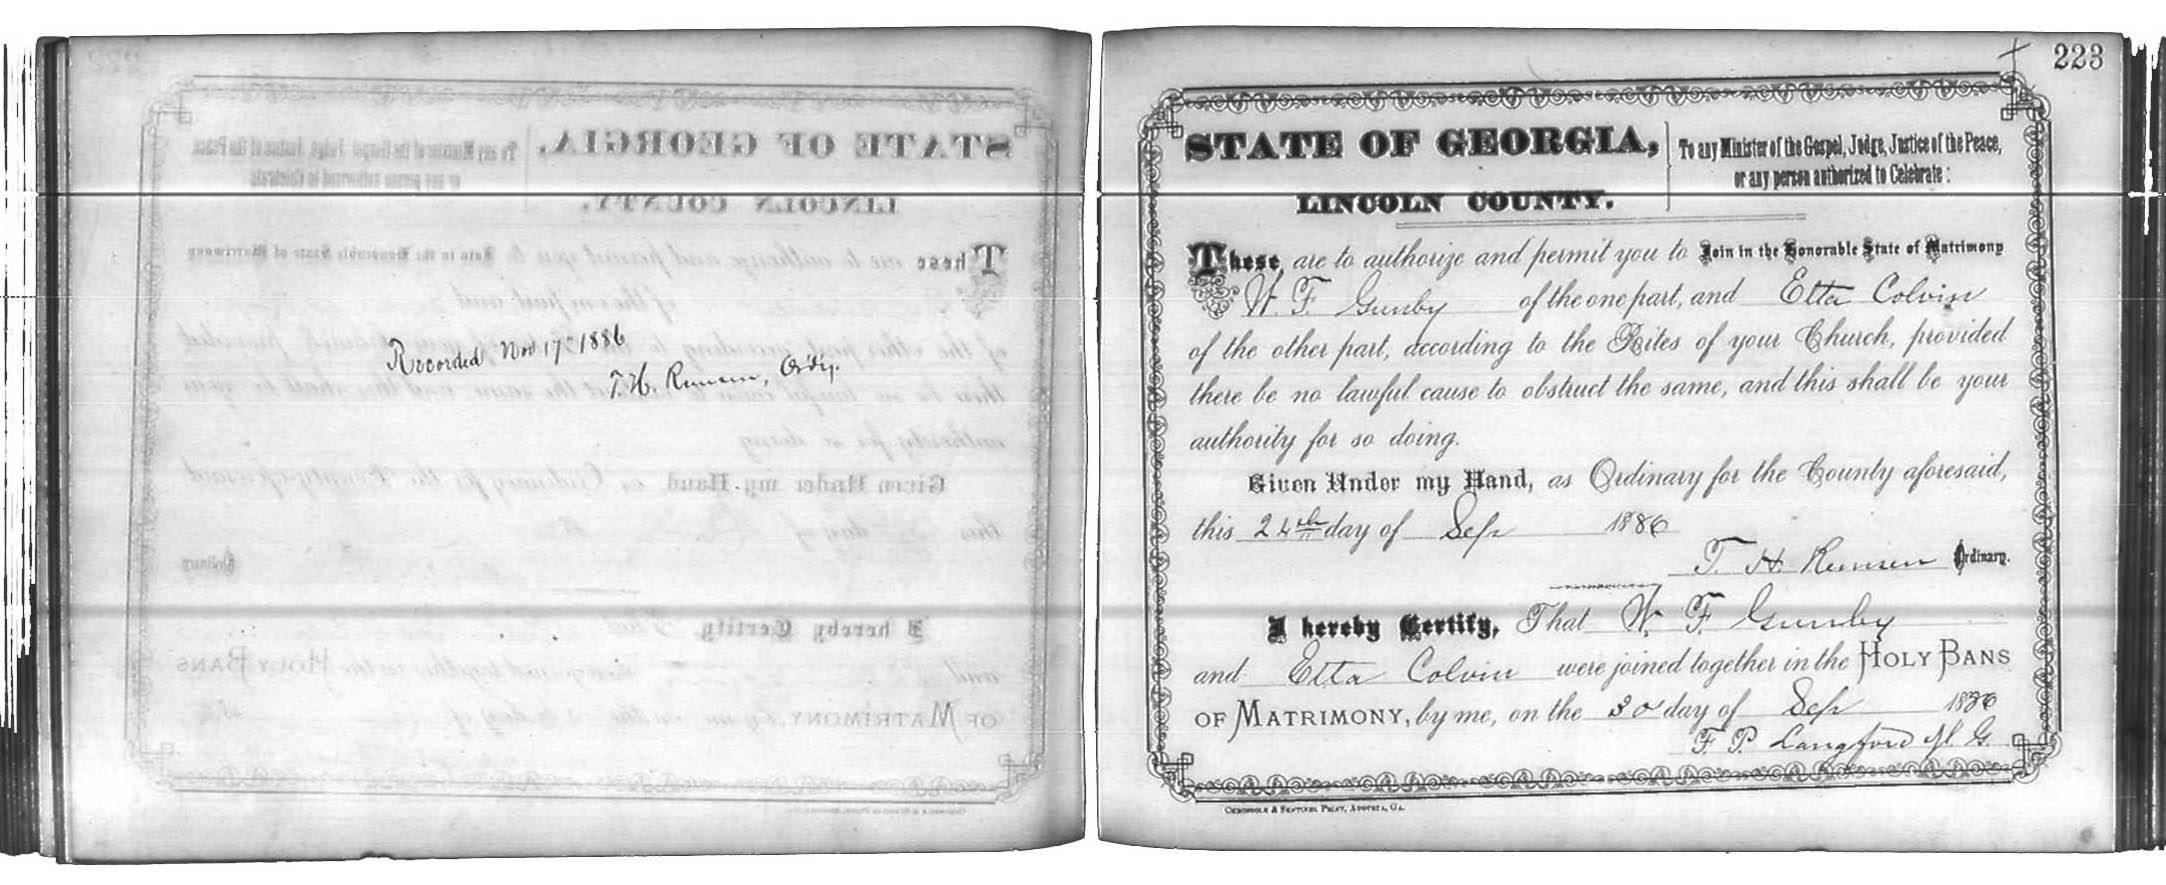 Recorded Nov 17th 1886
T. H. Remsen, Ord'y.
223
STATE OF GEORGIA,
LINCOLN COUNTY.
To any Minister of the Gospel, Judge, Justice of the Peace,
or any person authorized to Celebrate:
These are to authorize and permit you to Join in the Honorable State of Matrimony
W. F. Gunby of the one part, and Etta Colvin
of the other part, according to the Rites of your Church, provided
there be no lawful cause to obstruct the same, and this shall be your
authority for so doing.
Given Under my Hand, as Ordinary for the County aforesaid,
this 24th day of Sep 1886
T. H. Remsen Ordinary.
I hereby Certify, That W. F. Gunby
and Etta Colvin were joined together in the HOLY BANS
OF MATRIMONY, by me, on the 30 day of Sep 1886
F. P. Langford M. G.
CHRONICLE & SENTINEL PRINT, AUGUSTA, GA.